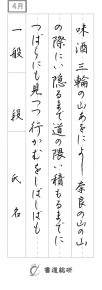 4月
味酒三輪の山あをによし奈良の山の山
の際にい隠るまで道の隈い積るまでに
つばらにも見つつ行かむをしばしばも
一般 段 氏名
書道総研